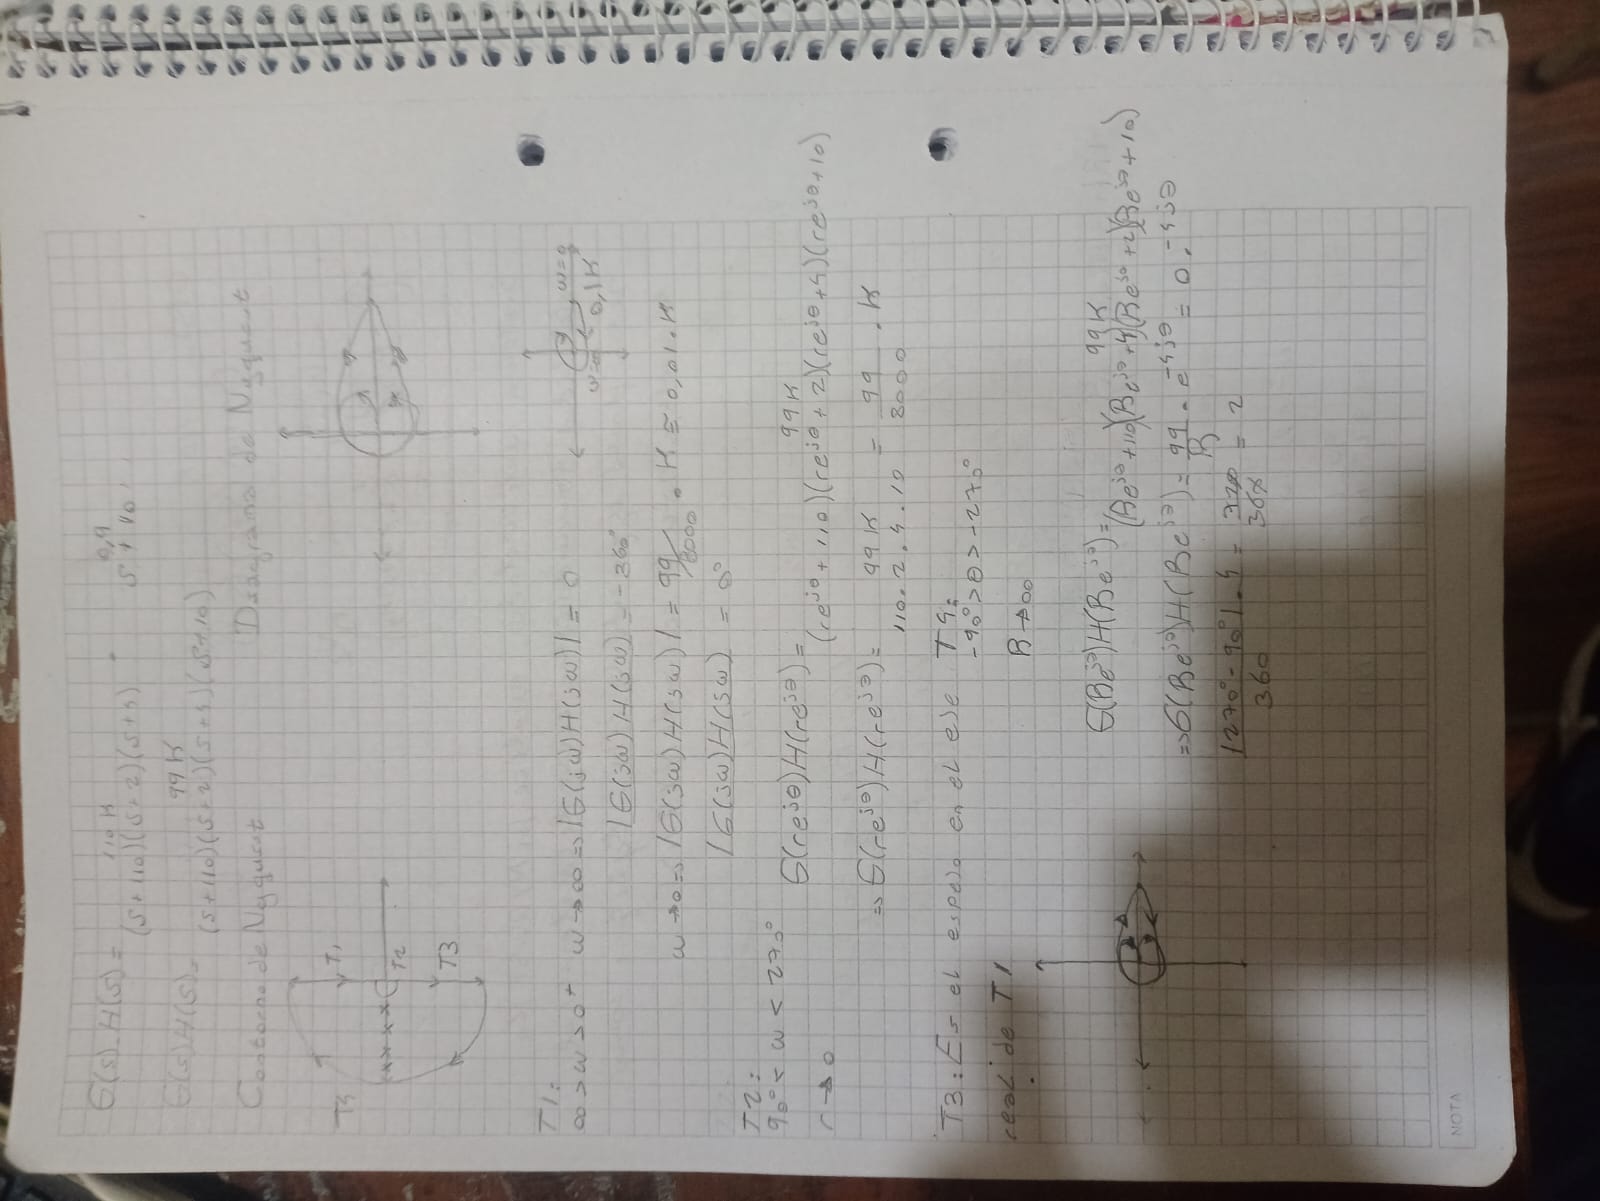 G(s).H(s)= 110 K / (s+110)(s+2)(s+4) . 0,9 / s+10
G(s)H(s)= 99 K / (s+110)(s+2)(s+4)(s+10)
Contorno de Nyquist Diagrama de Nyquist
T4 T1
T2
T3
T1:
∞>ω>0⁺ ω→∞ ⇒ |G(jω)H(jω)| = 0
ω=0 ω=∞ 0,1K
/G(jω)H(jω) = -360°
ω→0 ⇒ |G(jω)H(jω)| = 99/8000 . K ≅ 0,01.K
/G(jω)H(jω) = 0°
T2:
90° < ω < 270°
r→0
G(re^jθ)H(re^jθ)= 99K / (re^jθ+110)(re^jθ+2)(re^jθ+4)(re^jθ+10)
⇒ G(re^jθ)H(re^jθ)= 99K / 110.2.4.10 = 99 / 8000 . K
T3: Es el espejo en el eje
real de T1
T4:
-90°>θ>-270°
R→∞
G(Re^jθ)H(Re^jθ)= 99K / (Re^jθ+110)(Re^jθ+4)(Re^jθ+2)(Re^jθ+10)
⇒ G(Re^jθ)H(Re^jθ)= 99 / R . e^-4jθ = 0.^-4jθ
|270°-90°|.4 / 360 = 720 / 360 = 2
NOTA